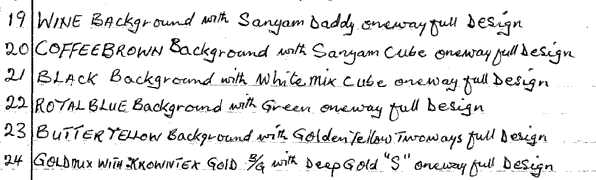 19 WINE Background with Sanyam Daddy oneway full Design
20 COFFEEBROWN Background with Sanyam Cube oneway full Design
21 BLACK Background with White mix Cube oneway full Design
22 ROYAL BLUE Background with Green oneway full Design
23 BUTTER YELLOW Background with Golden Yellow Twoways full Design
24 GOLDMIX WITH KROWNTEX GOLD B/G with Deep Gold "S" oneway full Design